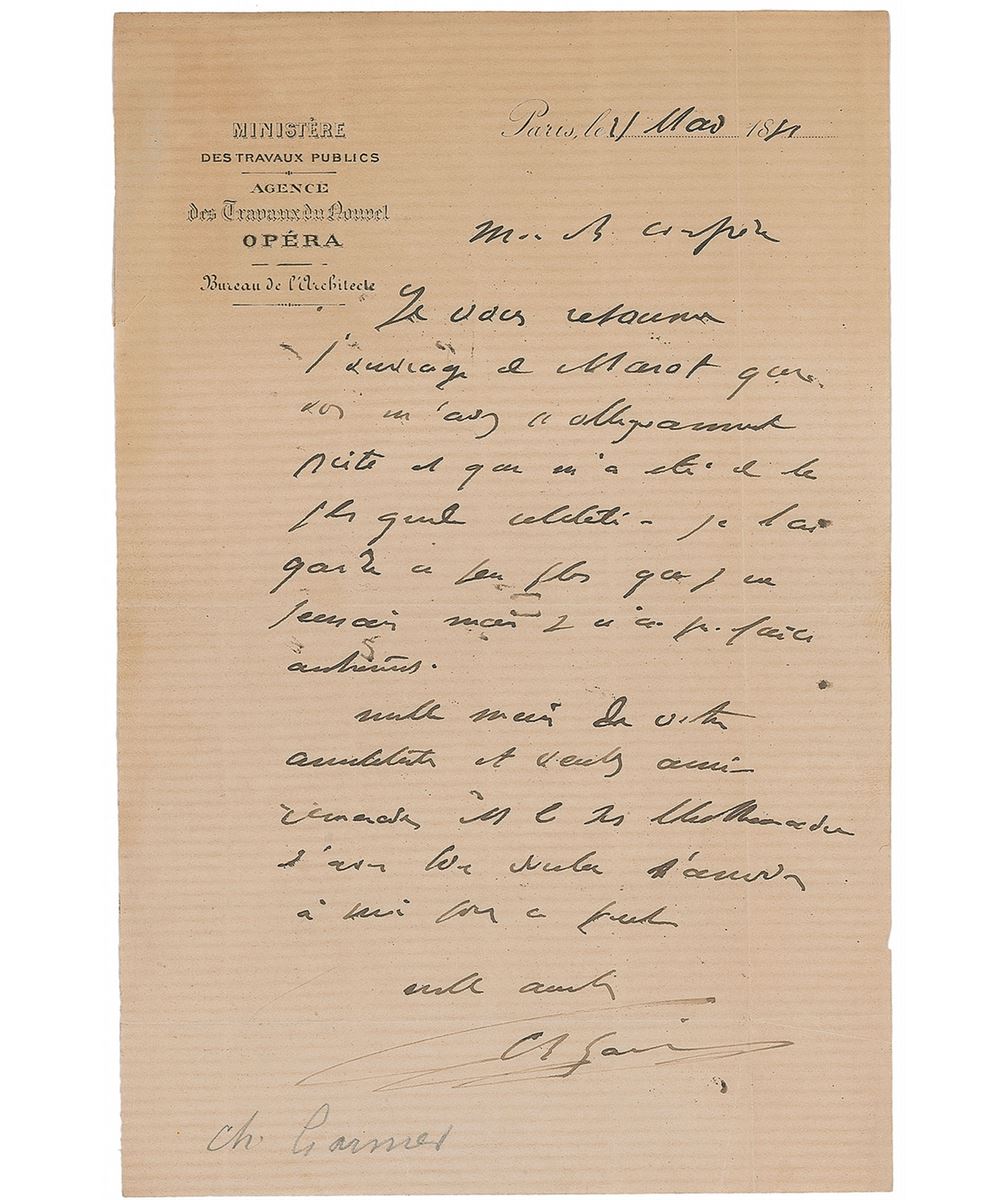 MINISTÈRE
DES TRAVAUX PUBLICS
AGENCE
des Travaux du Nouvel
OPÉRA
Bureau de l'Architecte
Paris, le 21 Mai 18
Mon ch confrère
Je vous retourne
l'ouvrage de Marot que
vous m'avez si obligeamment
prêté et qui m'a été de la
plus grande utilité - je l'ai
gardé un peu plus que je ne
pensais mais je n'ai pu faire
autrement.
mille merci de votre
amabilité et veuillez aussi
remercier M
d'avoir bien voulu
à moi pour ce prêt
mille amitiés
Ch Garnier
Ch. Garnier